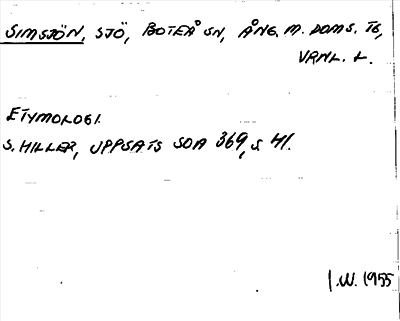 SIMSJÖN, SJÖ, BOTEÅ SN, ÅNG. M. DOMS. TG,
VRNL. L.
ETYMOLOGI.
S. HILLER, UPPSATS SOA 369, S 41.
I.W. 1955